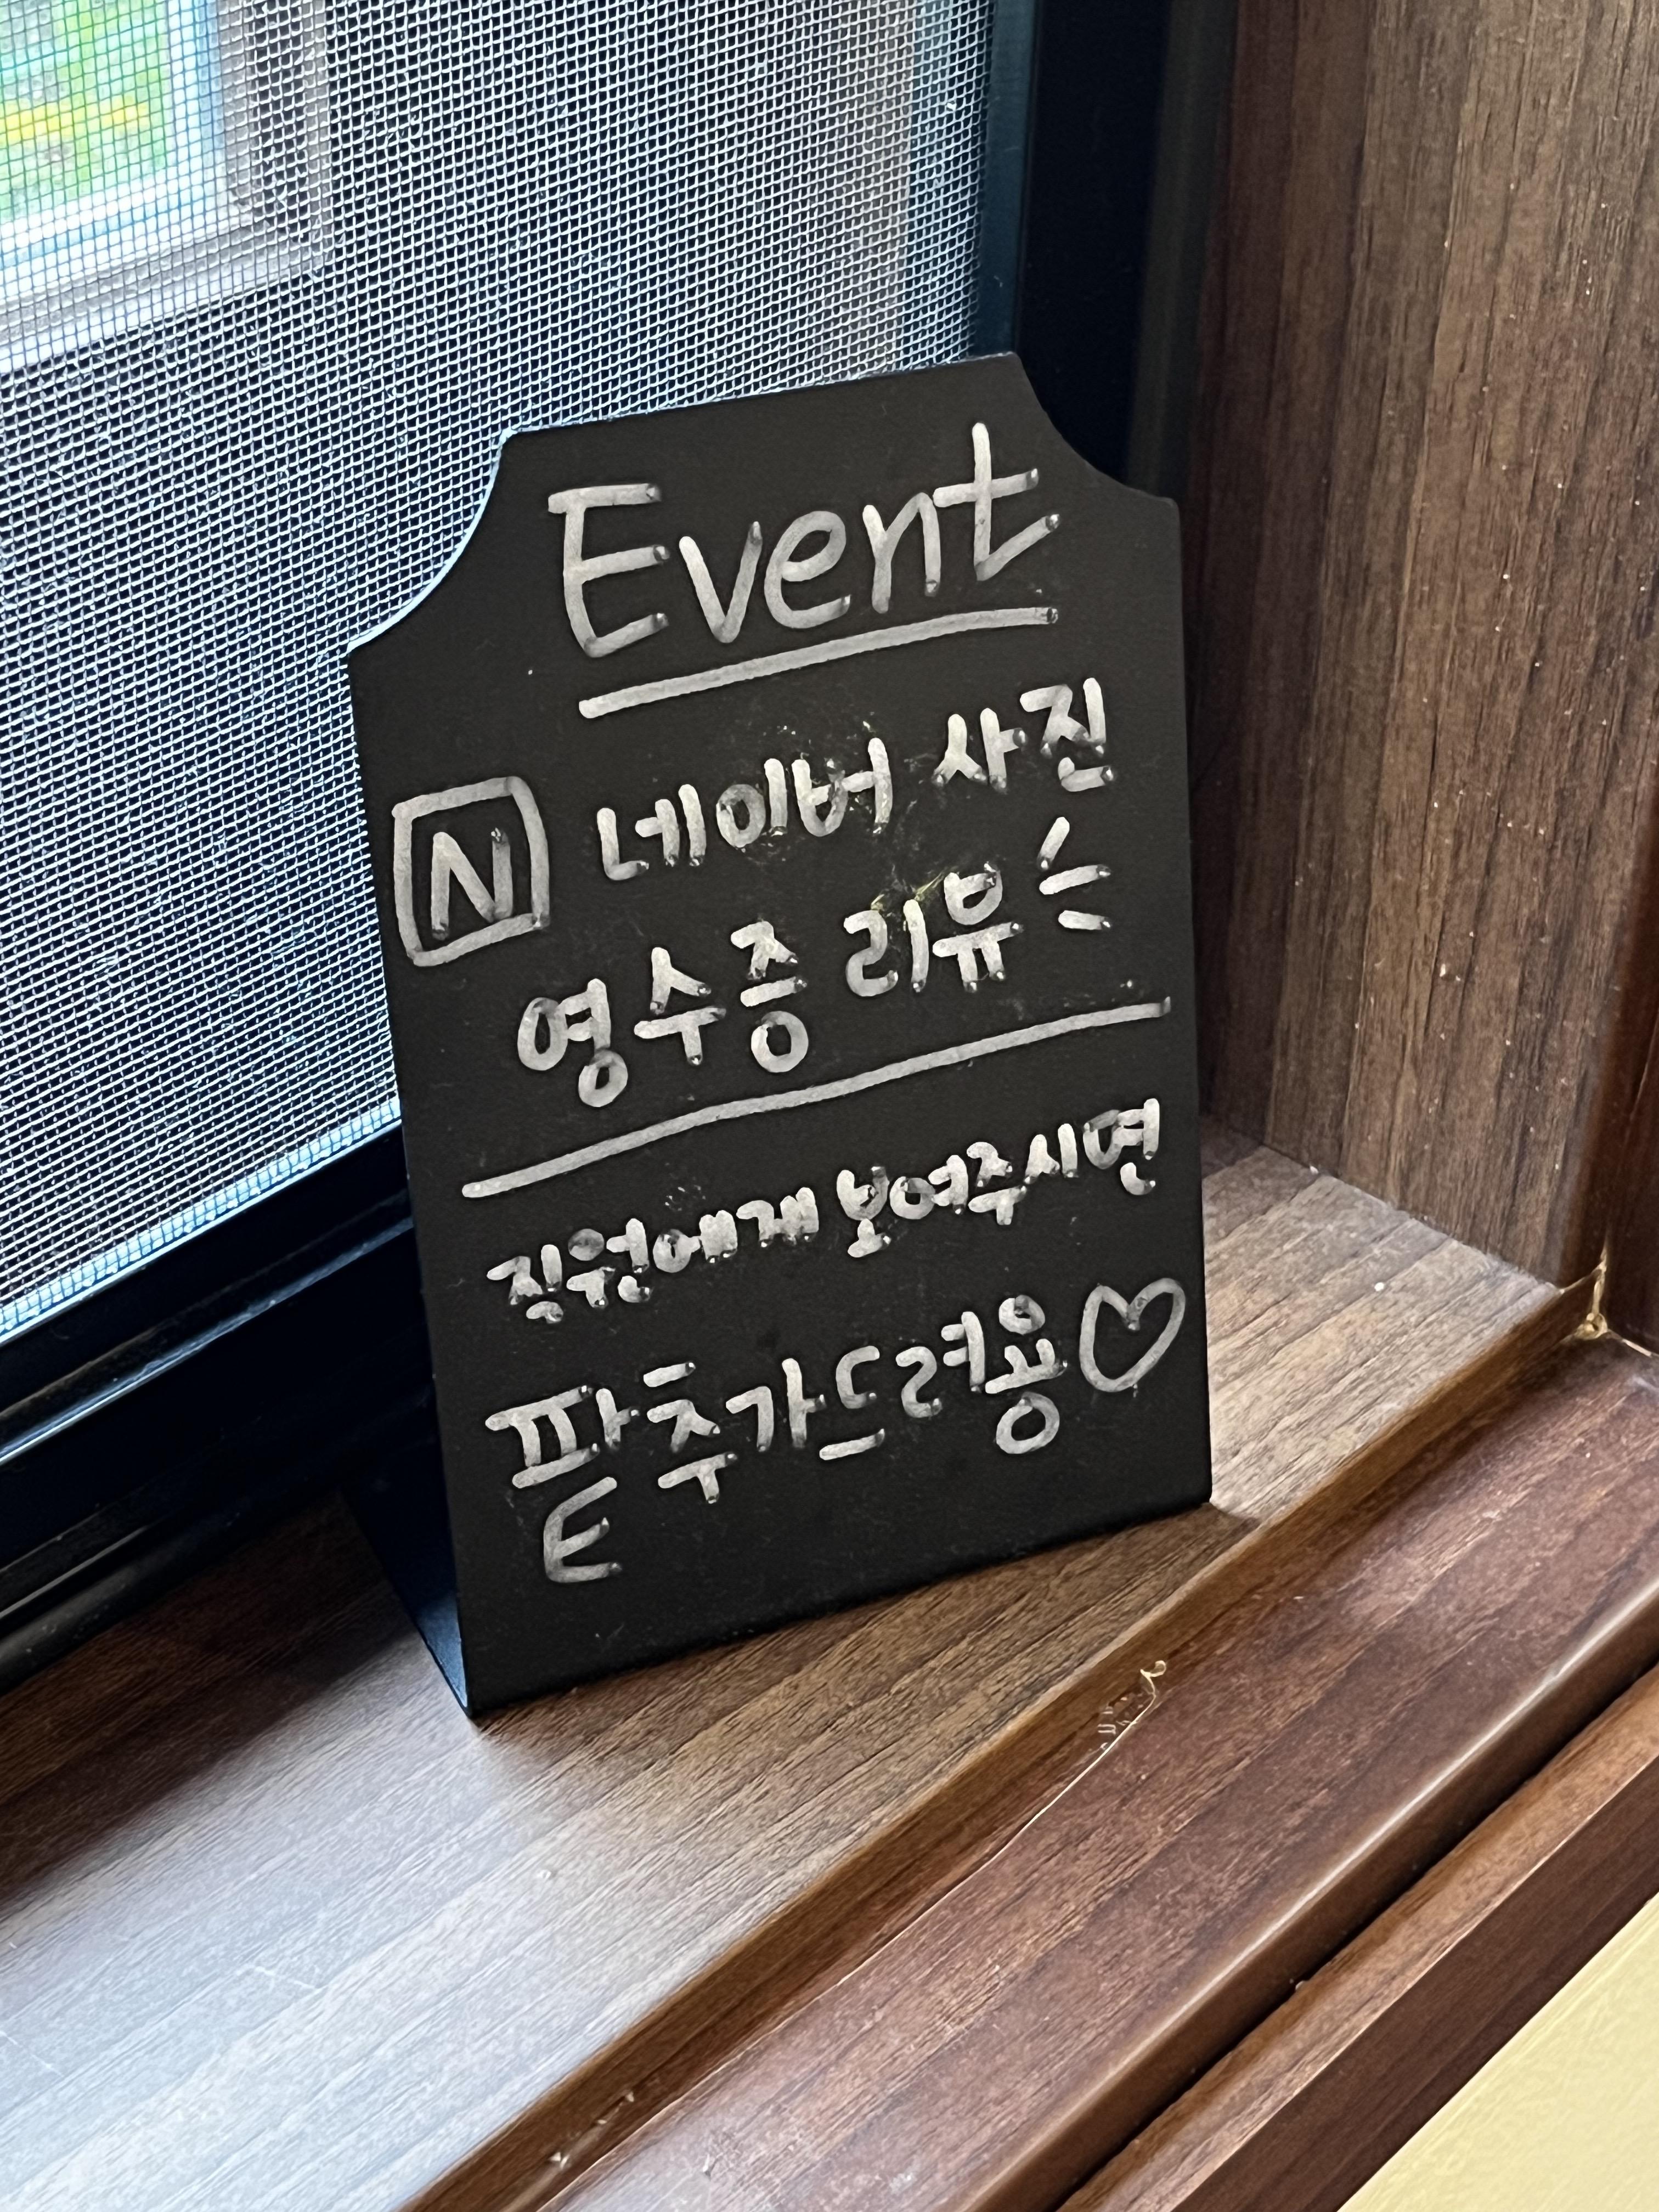 Event
N 네이버 사진
영수증 리뷰
직원에게 보여주시면
팥추가드려용♡